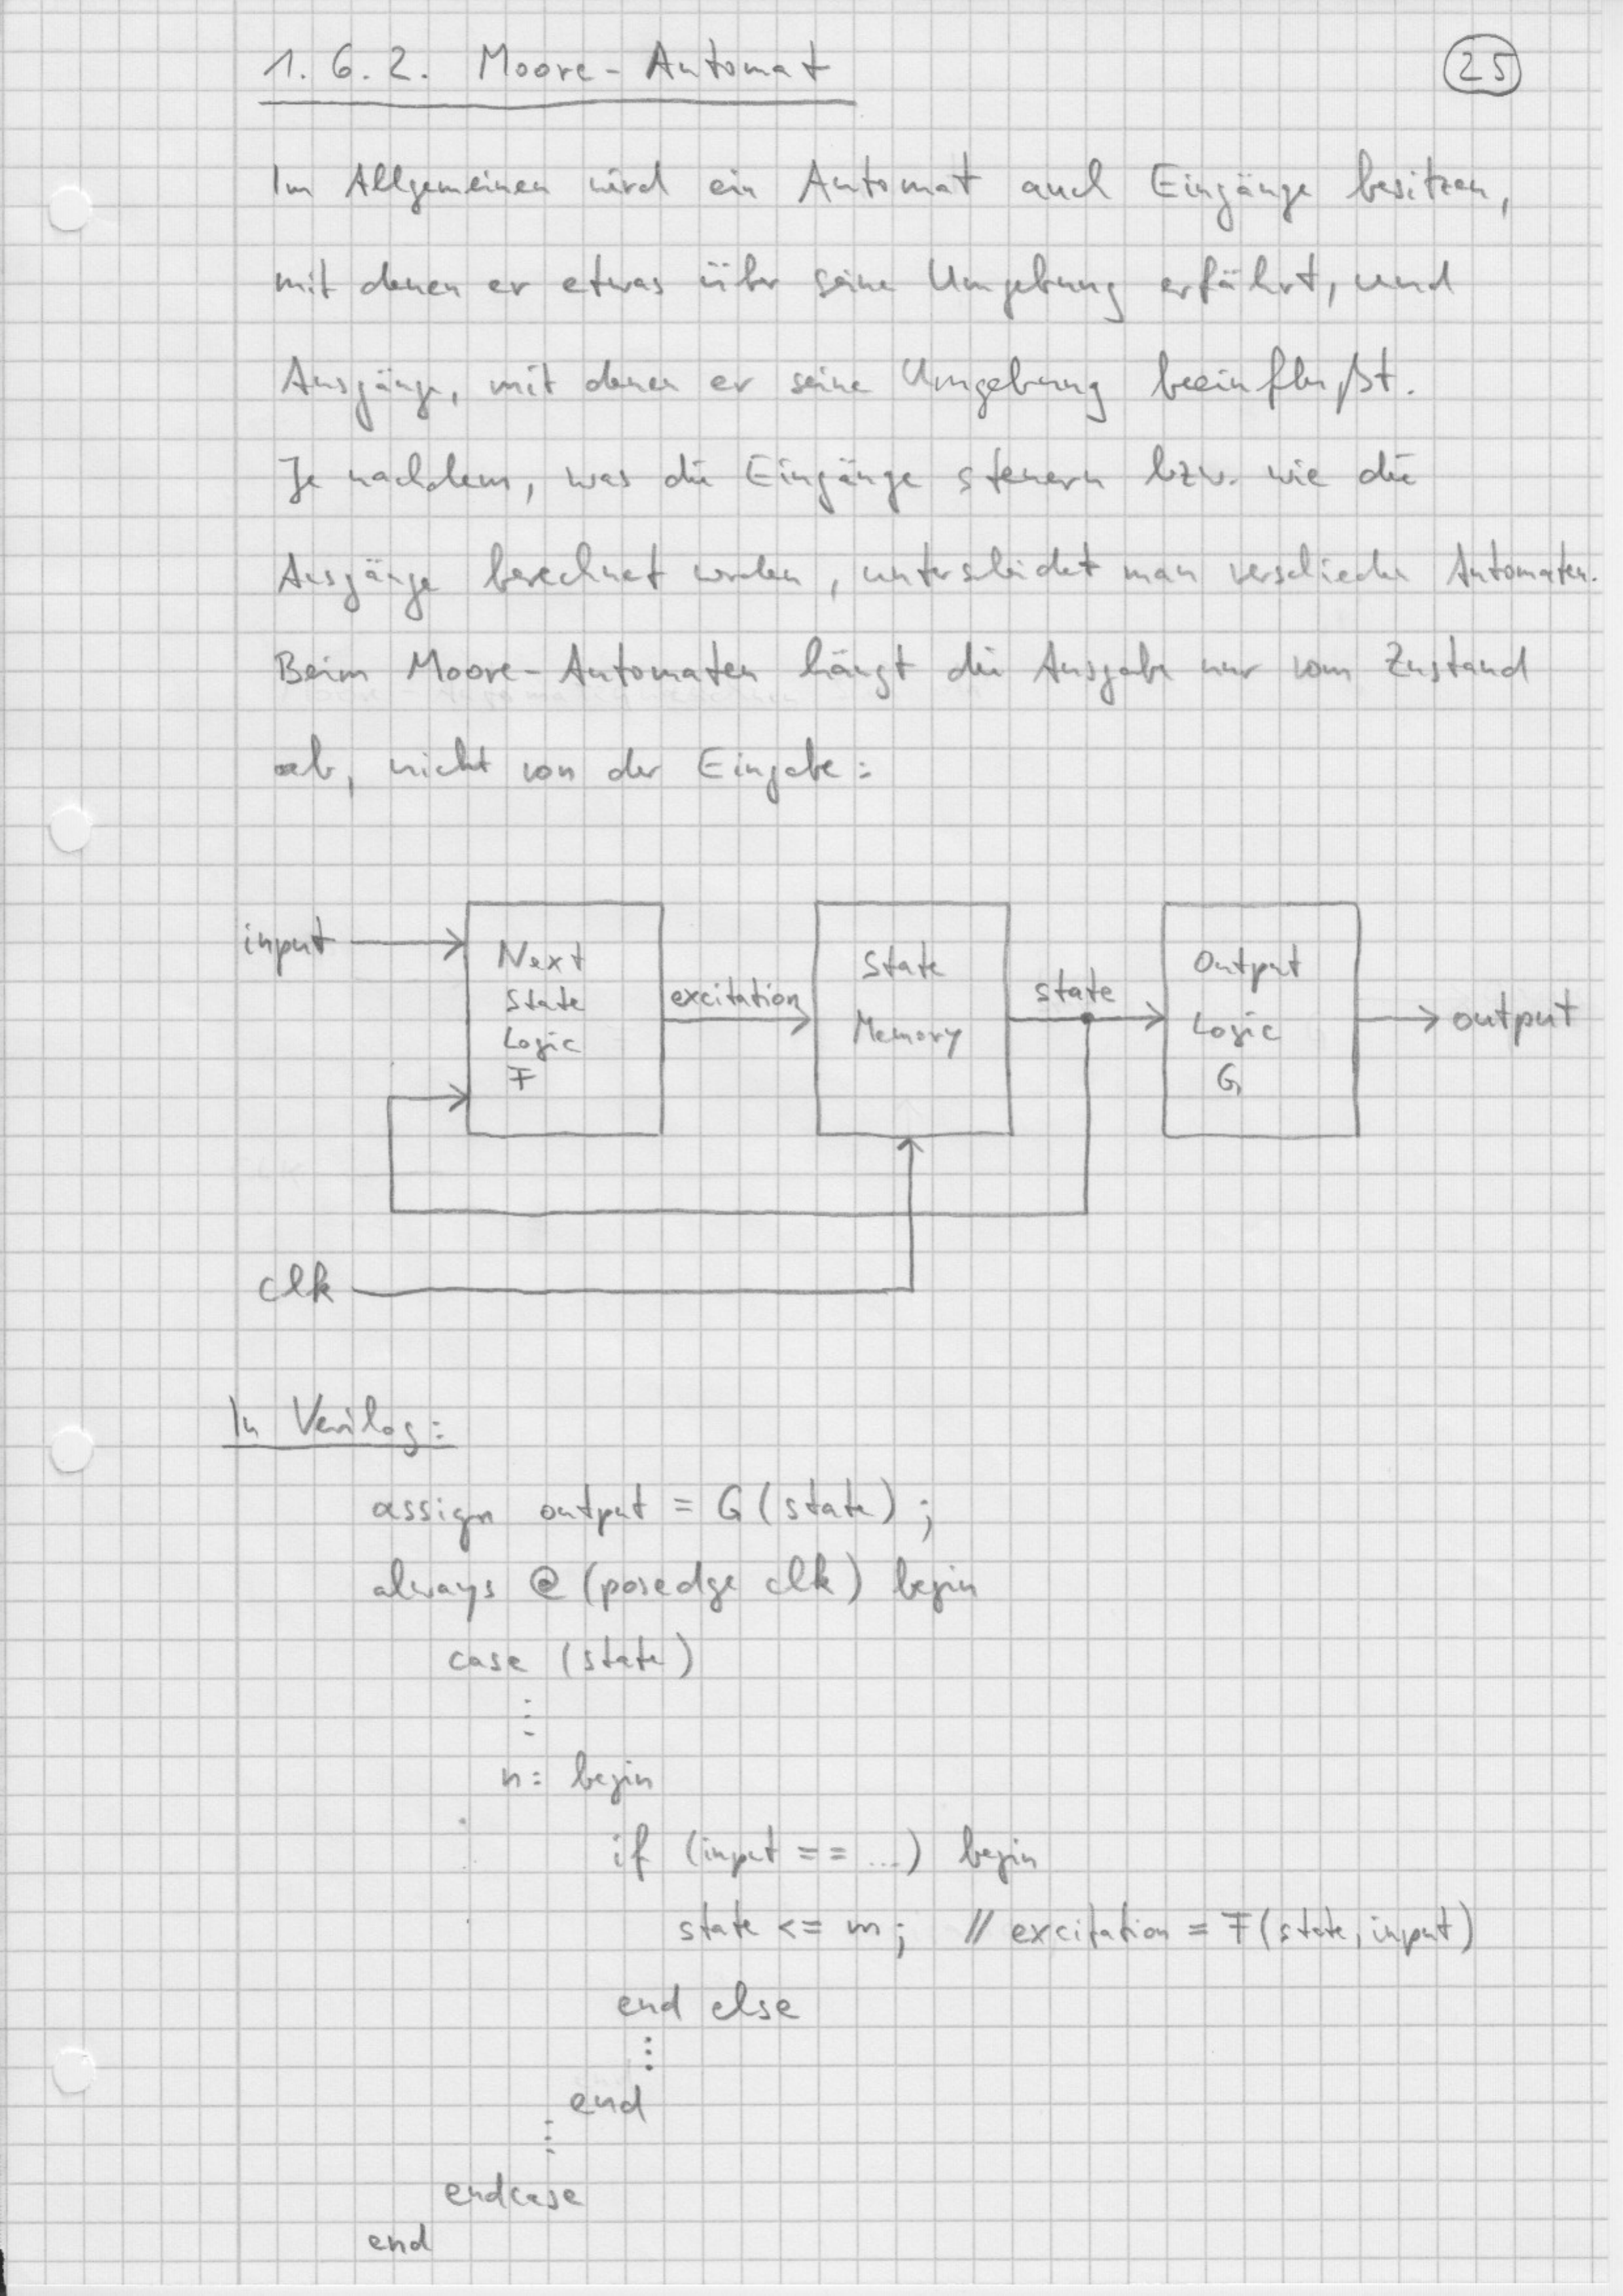 1.6.2. Moore-Automat
25
Im Allgemeinen wird ein Automat auch Eingänge besitzen,
mit denen er etwas über seine Umgebung erfährt, und
Ausgänge, mit denen er seine Umgebung beeinflußt.
Je nachdem, was die Eingänge steuern bzw. wie die
Ausgänge berechnet werden, unterscheidet man verschiedene Automaten.
Beim Moore-Automaten hängt die Ausgabe nur vom Zustand
ab, nicht von der Eingabe:
input
Next
State
Logic
F
excitation
State
Memory
state
Output
Logic
G
output
clk
In Verilog:
assign output = G(state);
always @ (posedge clk) begin
case (state)
⋮
n: begin
if (input == ...) begin
state <= m; // excitation = F(state, input)
end else
⋮
end
⋮
endcase
end